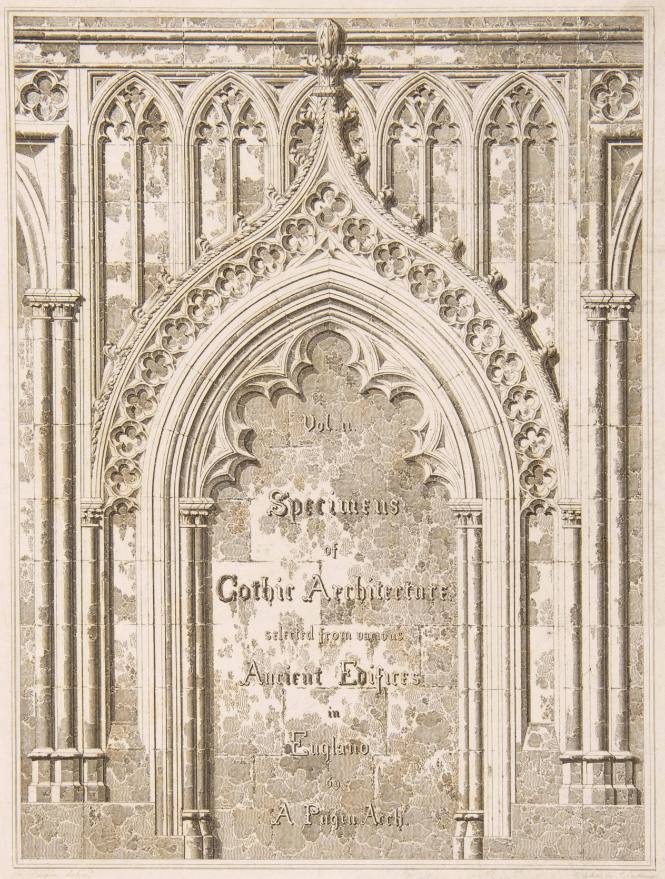 Vol. II.
Specimens
of
Gothic Architecture
selected from various
Ancient Edifices
in
England
by
A Pugin Arch.